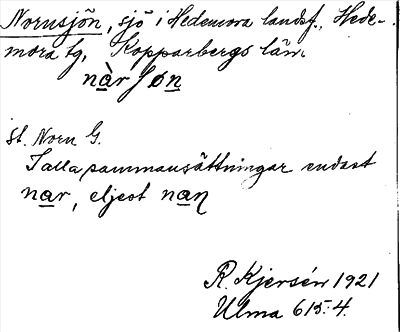 Nornsjön, sjö i Hedemora landsf., Hede-
mora tg, Kopparbergs län.
nàr ſøn
st. Norn G.
I alla sammansättningar endast
nar, eljest naɳ
R. Kjersén 1921
Ulma 615:4.